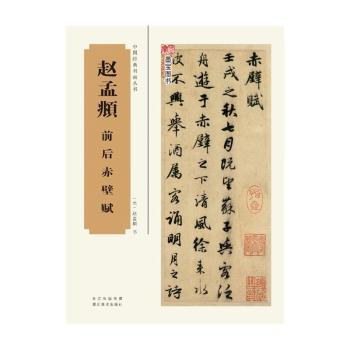 中国经典书画丛书
赵孟頫
前后赤壁赋
（元）赵孟頫 书
长江出版传媒
湖北美术出版社
赤壁賦
壬戌之秋七月既望蘇子與客泛
舟遊于赤壁之下清風徐来水
波不興舉酒属客誦明月之詩